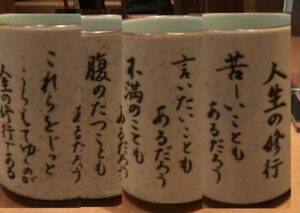 人生の修行
苦しいことも
あるだろう
言いたいことも
あるだろう
不満のことも
あるだろう
腹のたつことも
あるだろう
これらをじっと
こらえてゆくのが
人生の修行である